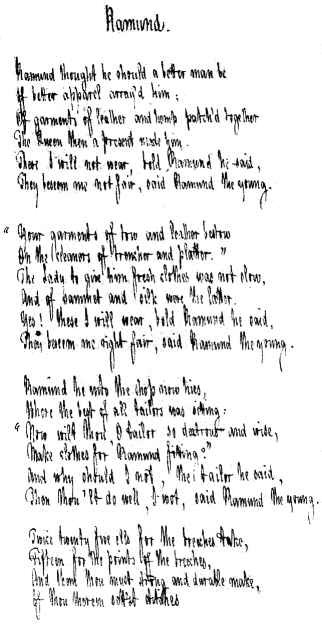 Ramund.
Ramund thought he should a better man be
If better apparel array'd him;
Of garments of leather and hemp patch'd together
The Queen then a present made him.
These I will not wear, bold Ramund he said,
They beseem me not fair, said Ramund the young.
"Your garments of tow and leather bestow
On the cleaners of trencher and platter."
The Lady to give him fresh clothes was not slow,
And of samnet and silk were the latter.
Yes! these I will wear, bold Ramund he said,
They beseem me right fair, said Ramund the young.
Ramund he unto the shop now hies,
Where the best of all tailors was sitting:
"Now wilt thou, O tailor so dextrous and wise,
Make clothes for Ramund fitting?"
And why should I not, the tailor he said,
Then thou'lt do well, I wot, said Ramund the young.
Twice twenty five ells for the breeches take,
Fifteen for the points of the breeches,
And them thou must strong and durable make,
If thou thereon stitches